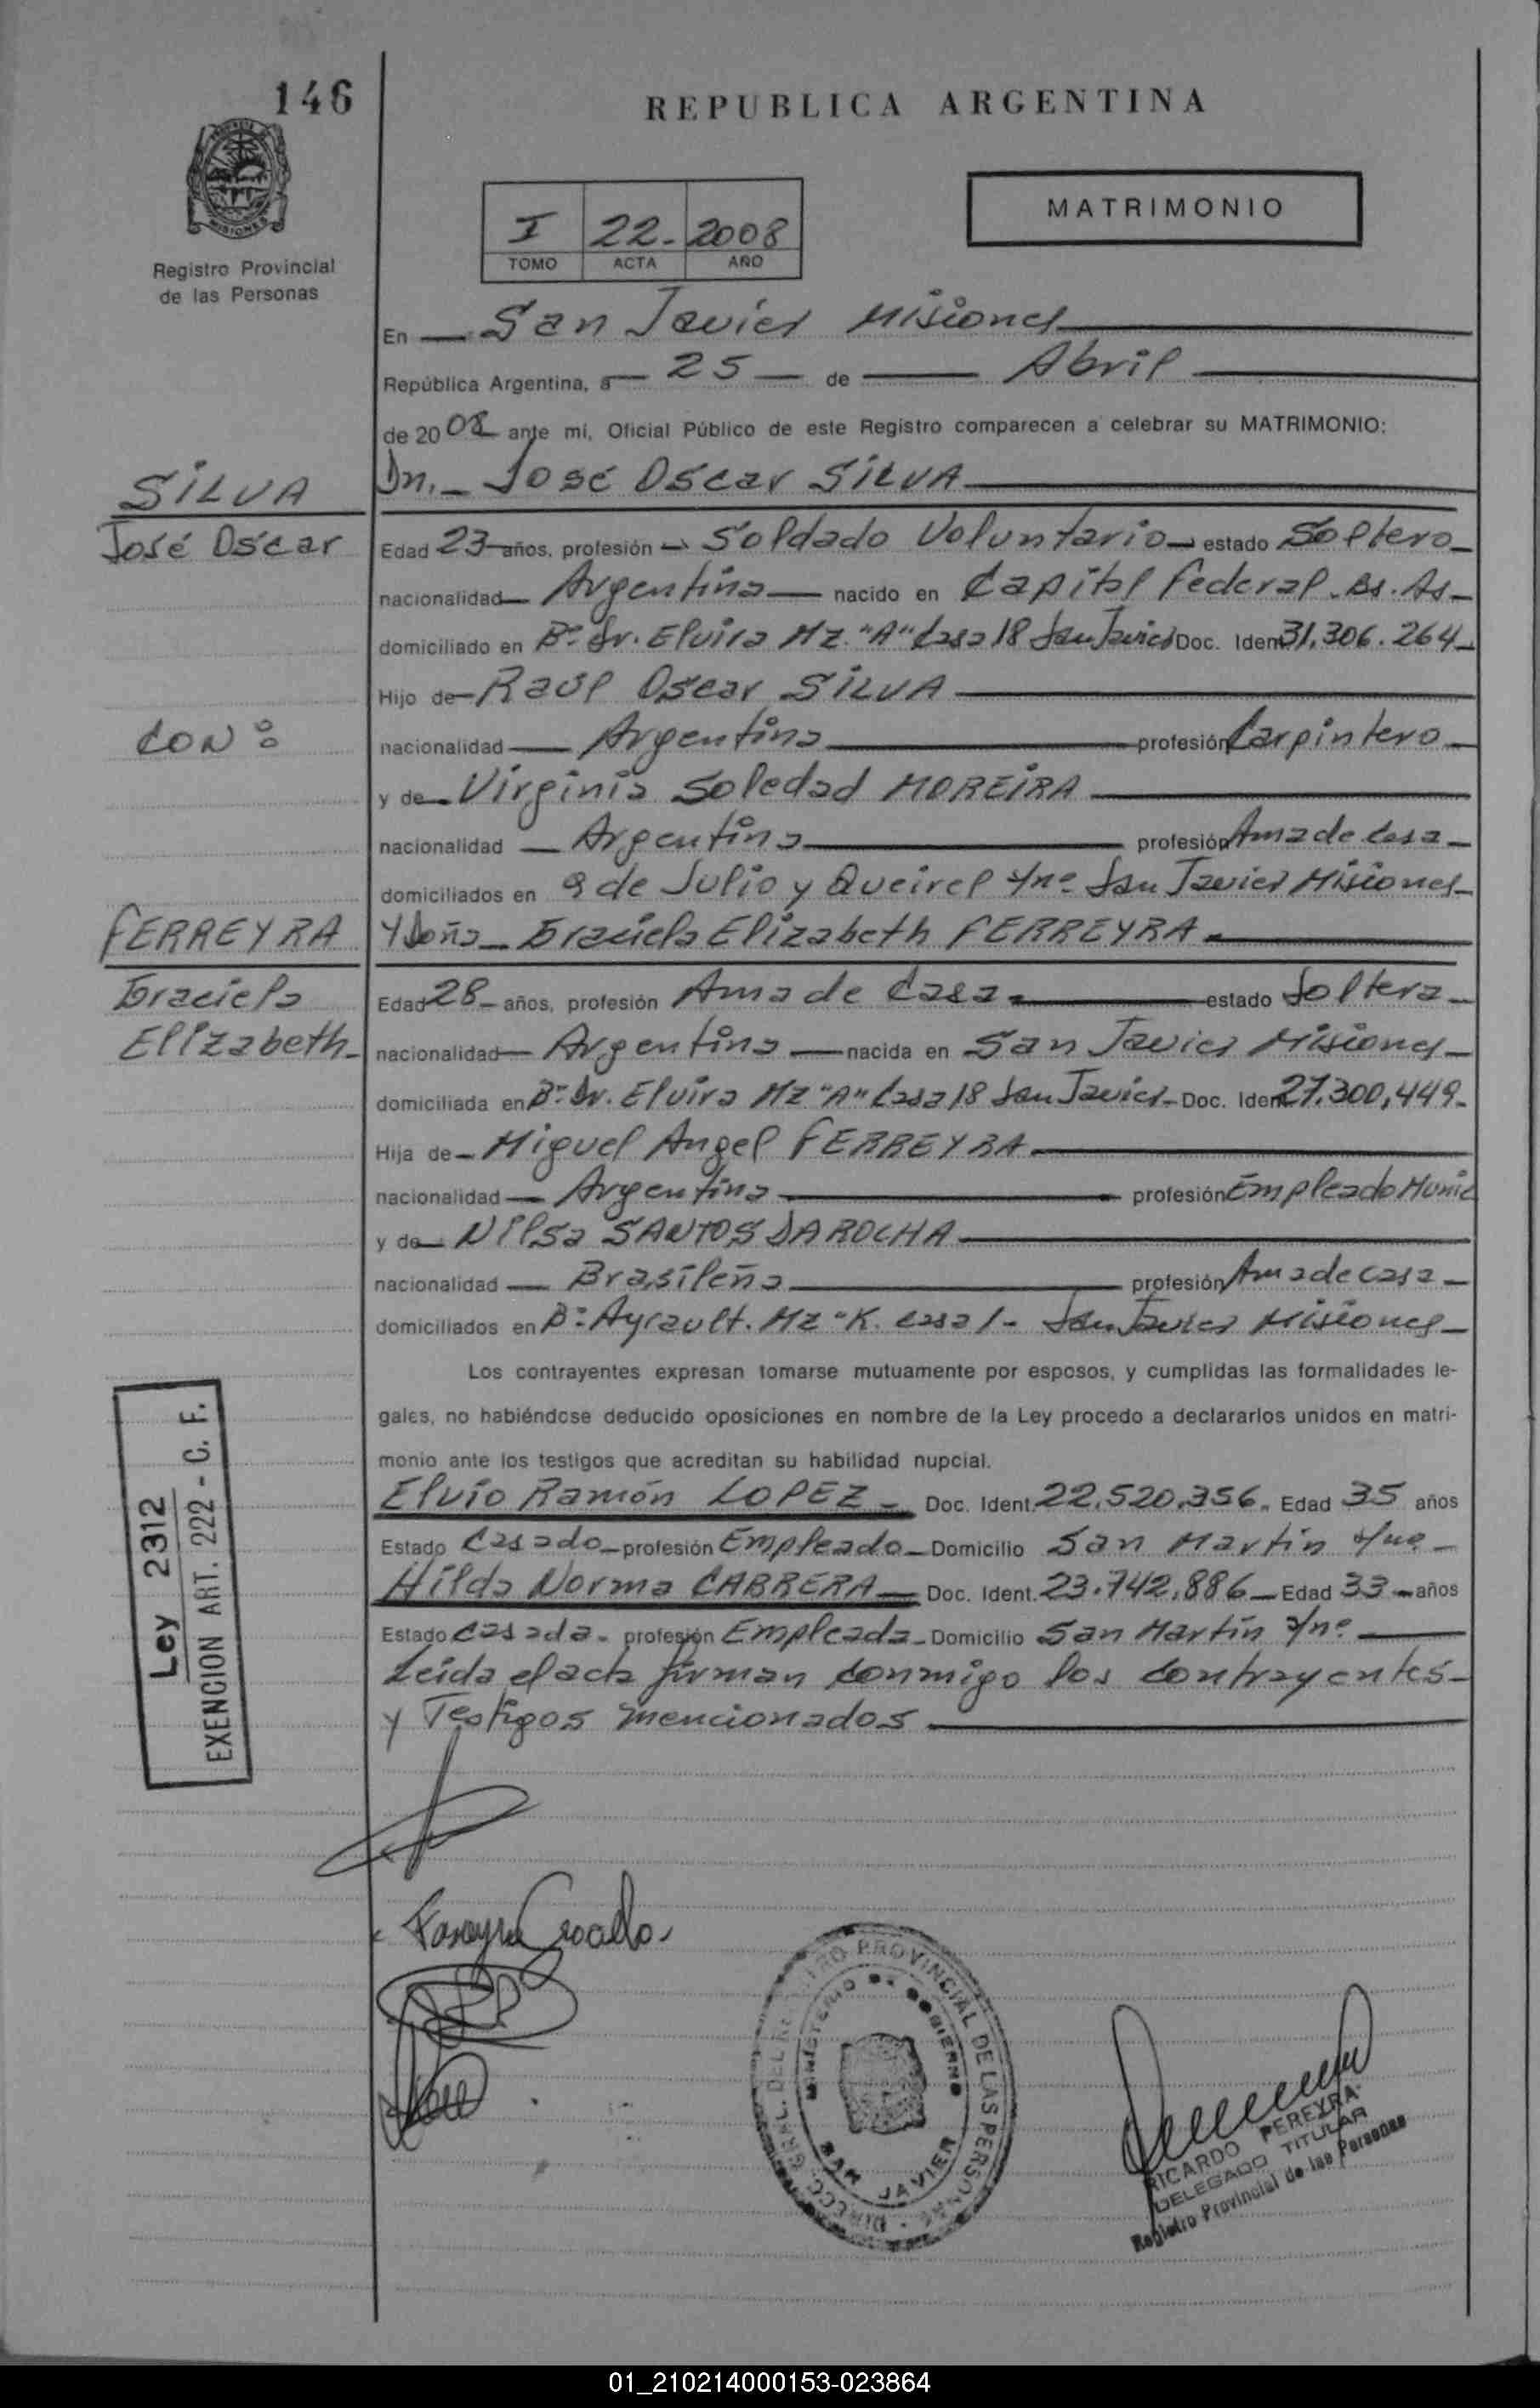 146
REPUBLICA ARGENTINA
MATRIMONIO
I 22- 2008
TOMO ACTA AÑO
Registro Provincial
de las Personas
En San Javier Misiones
República Argentina, a 25 de Abril
de 2008 ante mi, Oficial Público de este Registro comparecen a celebrar su MATRIMONIO:
SILVA
José Oscar
Dn. José Oscar SILVA
Edad 23 años, profesión Soldado Voluntario estado Soltero
nacionalidad Argentina nacido en Capital Federal. Bs. As
domiciliado en B° Sr. Elvira Mz. "A" Casa 18 San Javier Doc. Ident 31.306.264
Hijo de Raúl Oscar SILVA
CON:
nacionalidad Argentina profesión Carpintero
y de Virginia Soledad MOREIRA
nacionalidad Argentina profesión Ama de Casa
domiciliados en 9 de Julio y Queirel s/n° San Javier Misiones
FERREYRA
Graciela
Elizabeth
Y Doña Graciela Elizabeth FERREYRA
Edad 28 años, profesión Ama de Casa estado Soltera
nacionalidad Argentina nacida en San Javier Misiones
domiciliada en B° Elvira Mz "A" Casa 18 San Javier Doc. Ident 27.300,449
Hija de Miguel Angel FERREYRA
nacionalidad Argentina profesión Empleado Munic
y de Nilsa SANTOS DA ROCHA
nacionalidad Brasileña profesión Ama de casa
domiciliados en B° Ayrault. Mz "K. casa 1- San Javier Misiones
Los contrayentes expresan tomarse mutuamente por esposos, y cumplidas las formalidades le-
gales, no habiéndose deducido oposiciones en nombre de la Ley procedo a declararlos unidos en matri-
monio ante los testigos que acreditan su habilidad nupcial.
Elvio Ramón LOPEZ Doc. Ident. 22.520.356. Edad 35 años
Estado Casado profesión Empleado Domicilio San Martin s/n°
Hilda Norma CABRERA Doc. Ident. 23.742,886 Edad 33 años
Estado Casada profesión Empleada Domicilio San Martín s/n°
Leída el acta firman conmigo los contrayentes
y Testigos mencionados
Ley 2312
EXENCION ART. 222 - C. F.
PROVINCIAL DE LAS PERSONAS
MINISTERIO DE GOBIERNO
SAN JAVIER
RICARDO PEREYRA
DELEGADO TITULAR
Registro Provincial de las Personas
01_210214000153-023864